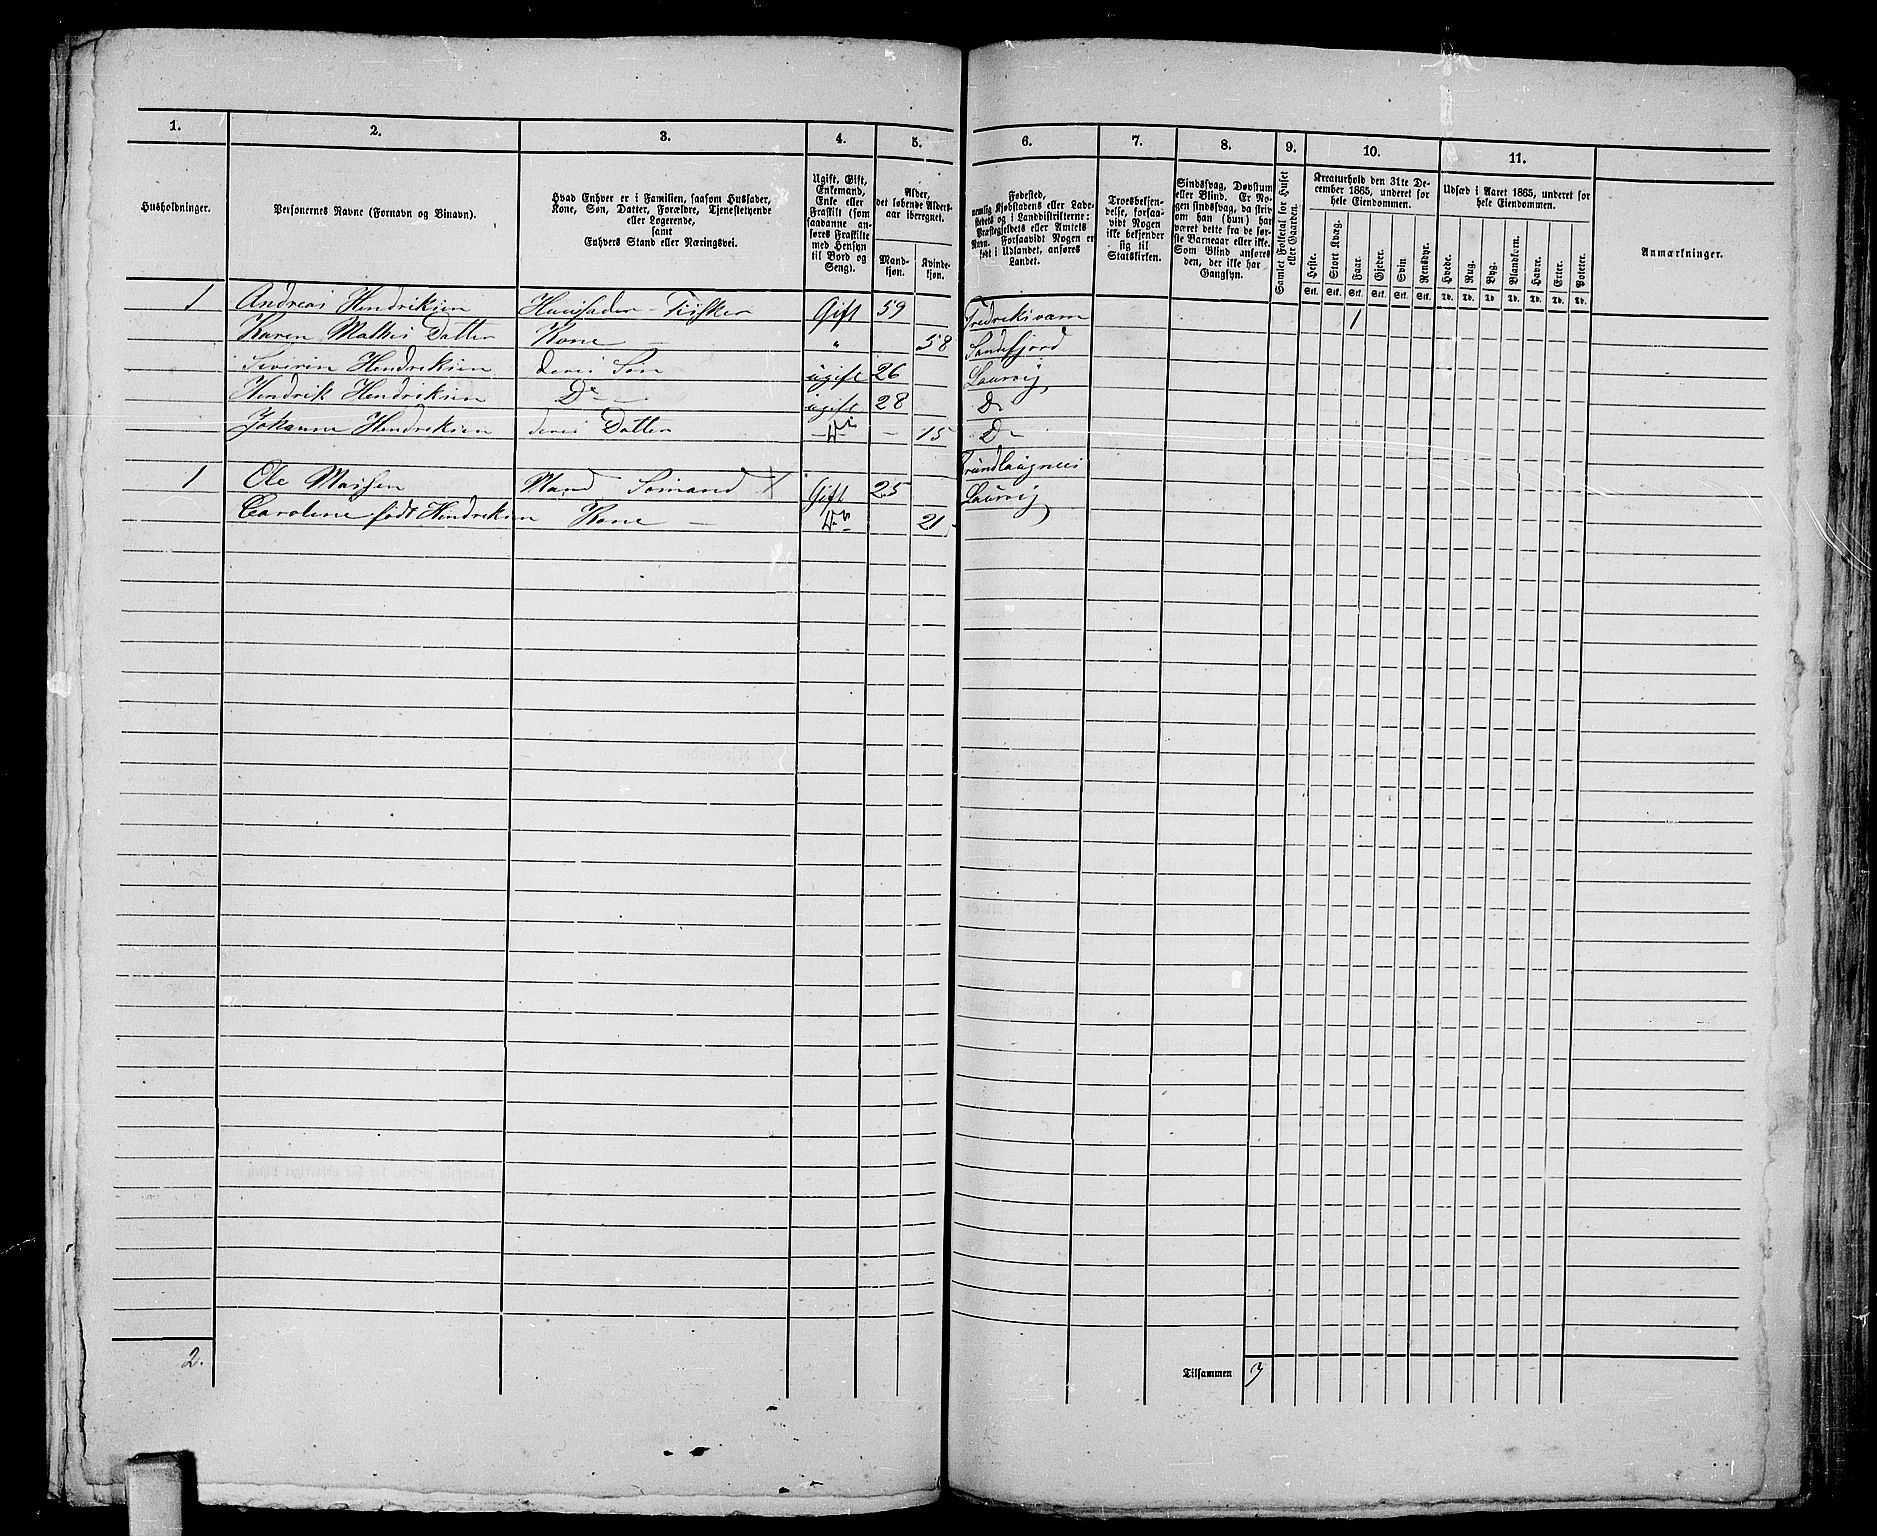 1. 2. 3. 4. 5. 6. 7. 8. 9. 10. 11.
Husholdninger.
Personernes Navne (Fornavn og Binavn).
Hvad Enhver er i Familien, saasom Husfader,
Kone, Søn, Datter, Forældre, Tjenestetyende
eller Logerende,
samt
Enhvers Stand eller Næringsvei.
Ugift, Gift,
Enkemand,
Enke eller
Fraskilt (som
saadanne an-
føres Fraskilte
med Hensyn
til Bord og
Seng).
Alder,
det løbende Alders-
aar iberegnet.
Mand-
kjøn.
Kvinde-
kjøn.
Fødested,
nemlig Kjøbstadens eller Lade-
stedets og i Landdistrikterne:
Præstegjeldets eller Amtets
Navn. Forsaavidt Nogen er
født i Udlandet, anføres
Landet.
Troesbekjen-
delse, forsaa-
vidt Nogen
ikke bekjender
sig til
Statskirken.
Sindssvag, Døvstum
eller Blind. Er No-
gen sindssvag, da skriv
om han (hun) har
været dette fra de før-
ste Barneaar eller ikke.
Som Blind anføres
den, der ikke har
Gangsyn.
Samlet Folketal for Huset
eller Gaarden.
Kreaturhold den 31te De-
cember 1865, underet for
hele Eiendommen.
Heste. Stort Kvæg. Faar. Gjeder. Svin. Rensdyr.
Stk. Stk. Stk. Stk. Stk. Stk.
Udsæd i Aaret 1865, underet for
hele Eiendommen.
Hvede. Rug. Byg. Blandkorn. Havre. Erter. Poteter.
Td. Td. Td. Td. Td. Td. Td.
Anmærkninger.
1 Andreas Hendriksen Huusfader - Fisker Gift 59 Fredriksværn 1
Karen Mathis Datter Kone — " 58 Sandefjord
Severin Hendriksen deres Søn ugift 26 Laurvig
Hendrik Hendriksen Do — ugift 28 Do
Johanne Hendriksen deres Datter Do - 15 Do
1 Ole Gift 25
Carolene født Hendriksen Kone — Do 21 Laurvig
2. Tilsammen 3